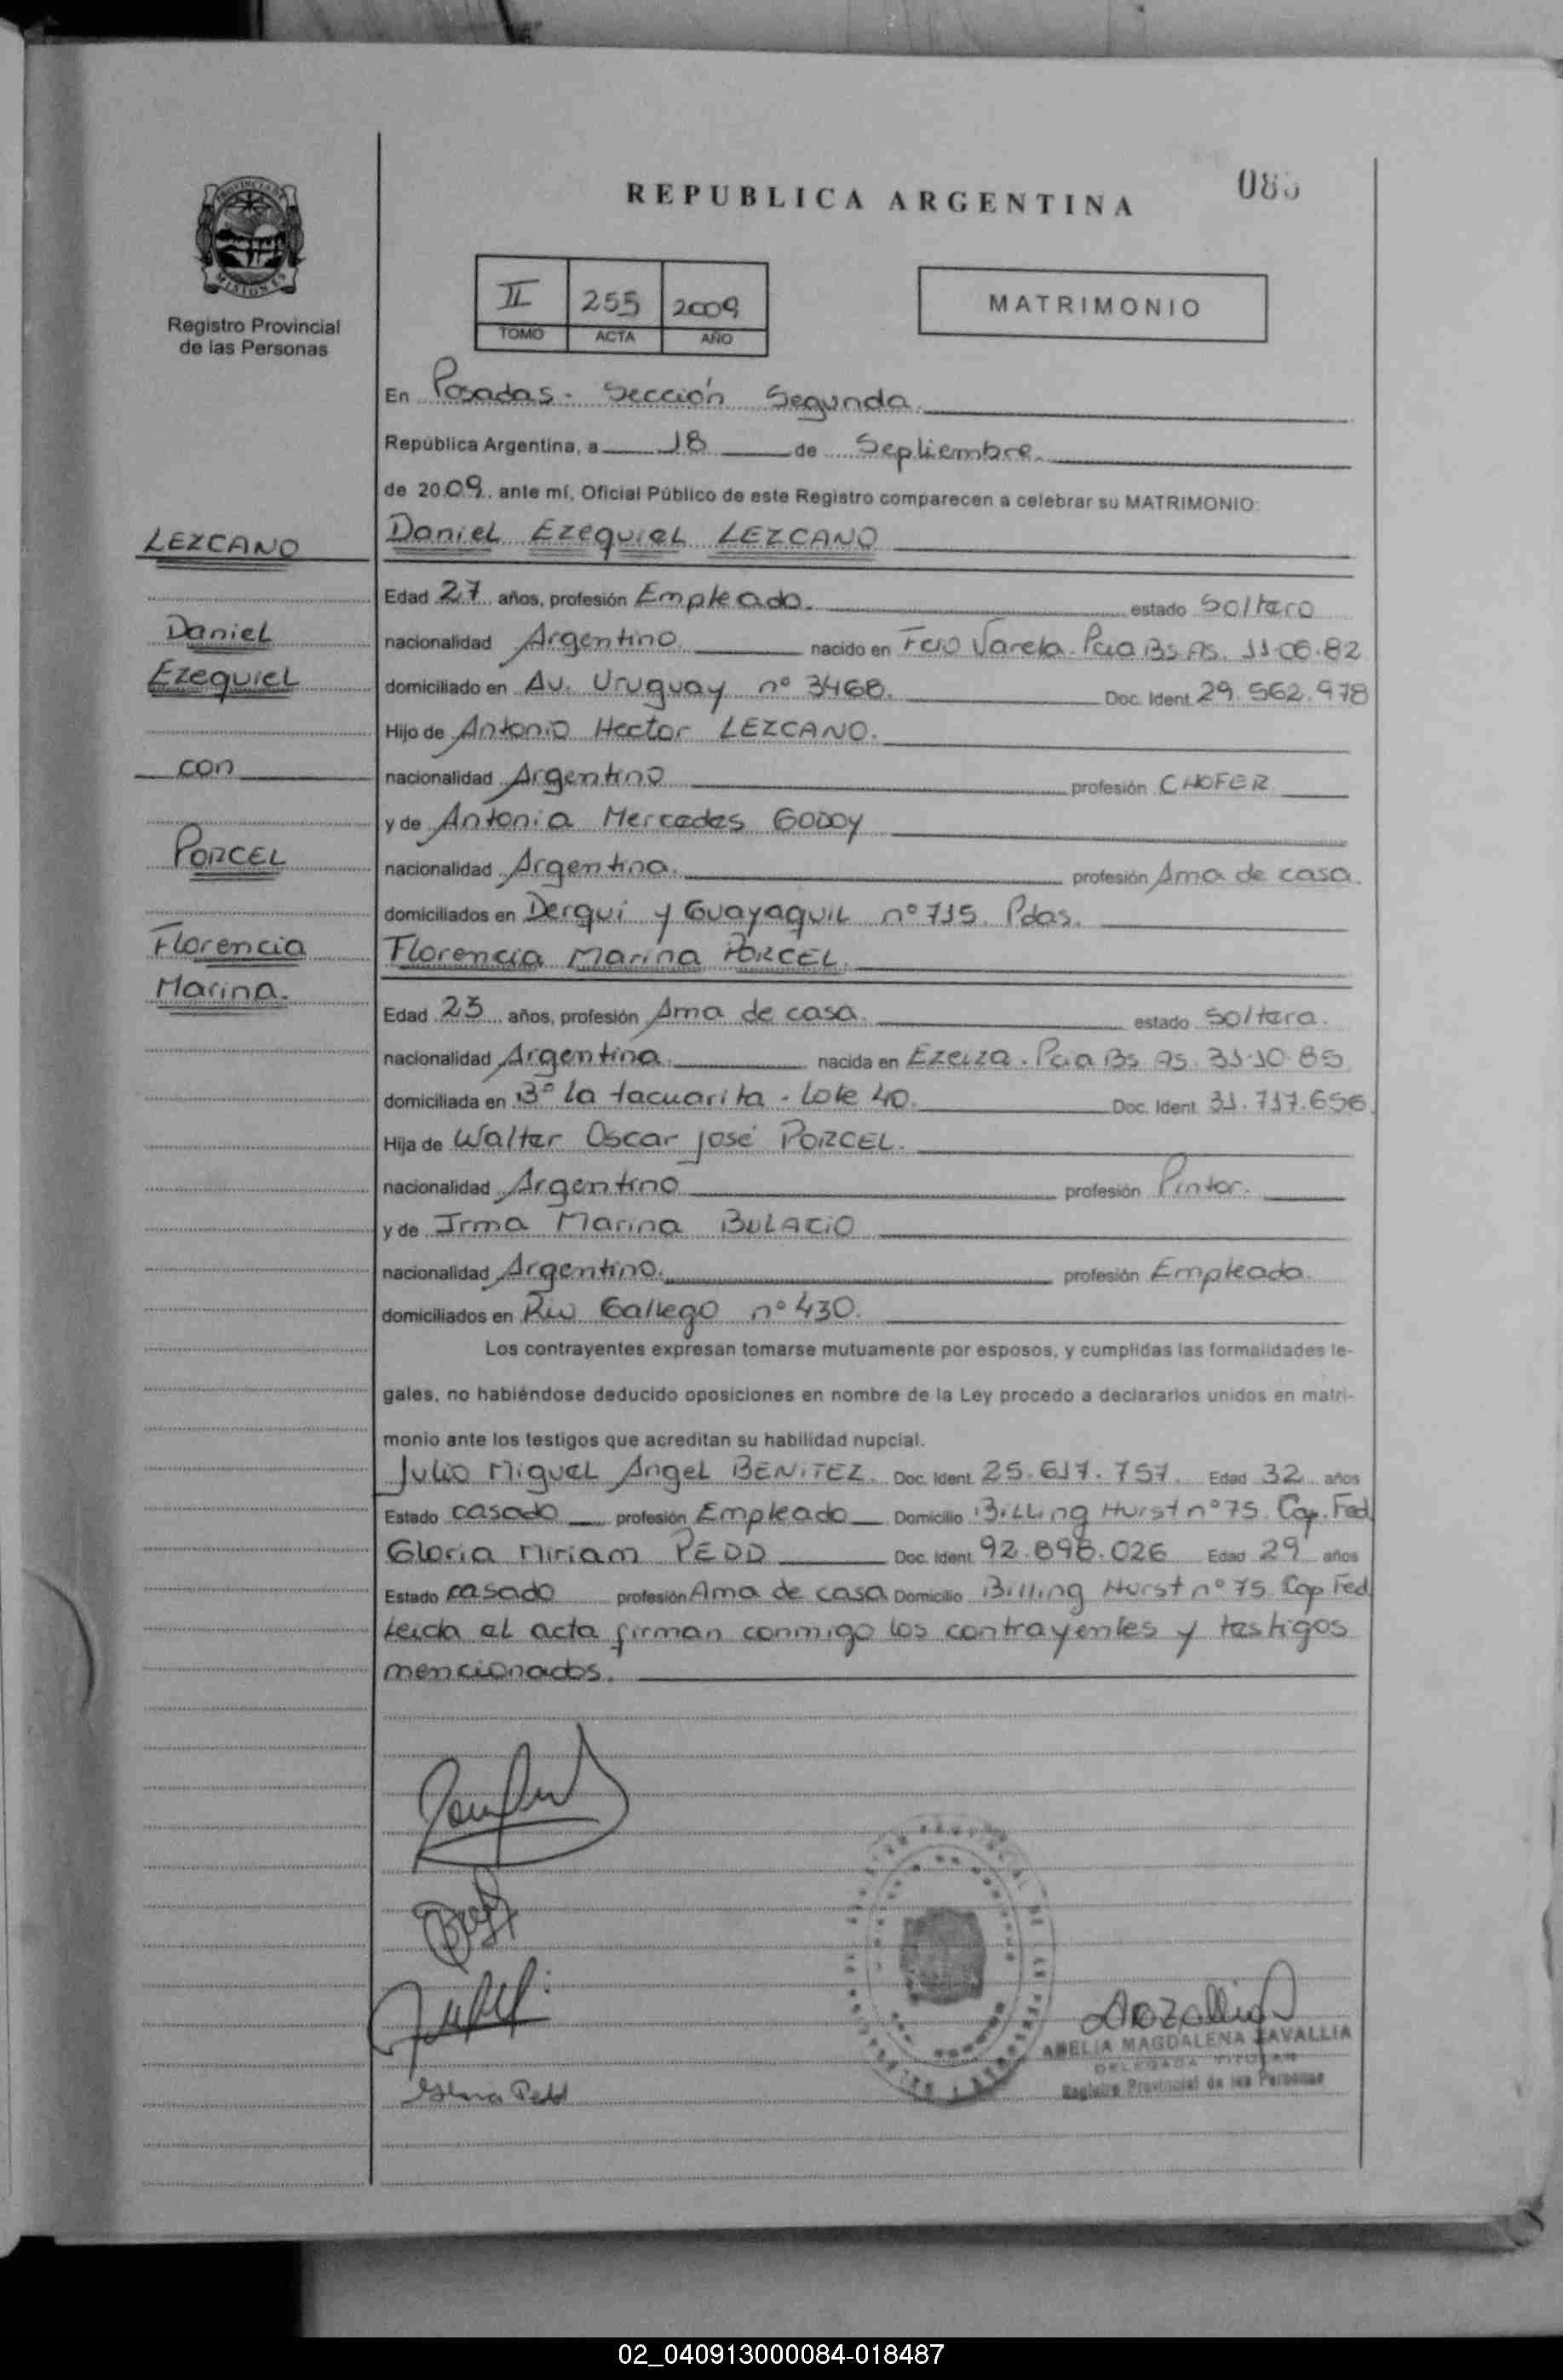 REPUBLICA ARGENTINA
PROVINCIA DE
MISIONES
Registro Provincial
de las Personas
II 255 2009
TOMO ACTA AÑO
MATRIMONIO
En Posadas - Sección Segunda.
República Argentina, a 18 de Septiembre.
de 2009. ante mí, Oficial Público de este Registro comparecen a celebrar su MATRIMONIO:
LEZCANO
Daniel Ezequiel LEZCANO
Edad 27 años, profesión Empleado. estado Soltero
Daniel
nacionalidad Argentino. nacido en Fcio Varela. Pcia Bs. As. 11.06.82
Ezequiel
domiciliado en Av. Uruguay nº 3468. Doc. Ident. 29.562.978
Hijo de Antonio Hector LEZCANO.
con
nacionalidad Argentino profesión CHOFER
y de Antonia Mercedes GODOY
PORCEL
nacionalidad Argentina. profesión Ama de casa.
domiciliados en Derqui y Guayaquil nº 715. Pdas.
Florencia
Florencia Marina PORCEL.
Marina.
Edad 23 años, profesión Ama de casa. estado Soltera.
nacionalidad Argentina. nacida en Ezeiza. Pcia Bs. As. 31-10-85
domiciliada en Bº La tacuarita - Lote 40. Doc. Ident. 31.717.656.
Hija de Walter Oscar José PORCEL.
nacionalidad Argentino profesión Pintor.
y de Irma Marina BULACIO
nacionalidad Argentino. profesión Empleada.
domiciliados en Rio Gallego nº 430.
Los contrayentes expresan tomarse mutuamente por esposos, y cumplidas las formalidades le-
gales, no habiéndose deducido oposiciones en nombre de la Ley procedo a declararlos unidos en matri-
monio ante los testigos que acreditan su habilidad nupcial.
Julio Miguel Angel BENITEZ. Doc. Ident. 25.617.757. Edad 32 años
Estado casado profesión Empleado Domicilio Billing Hurst nº 75. Cap. Fed.
Gloria Miriam PEDD Doc. Ident. 92.898.026 Edad 29 años
Estado casado profesión Ama de casa Domicilio Billing Hurst nº 75. Cap Fed
Leida el acta firman conmigo los contrayentes y testigos
mencionados.
AMELIA MAGDALENA ZAVALLIA
DELEGADA TITULAR
Registro Provincial de las Personas
02_040913000084-018487